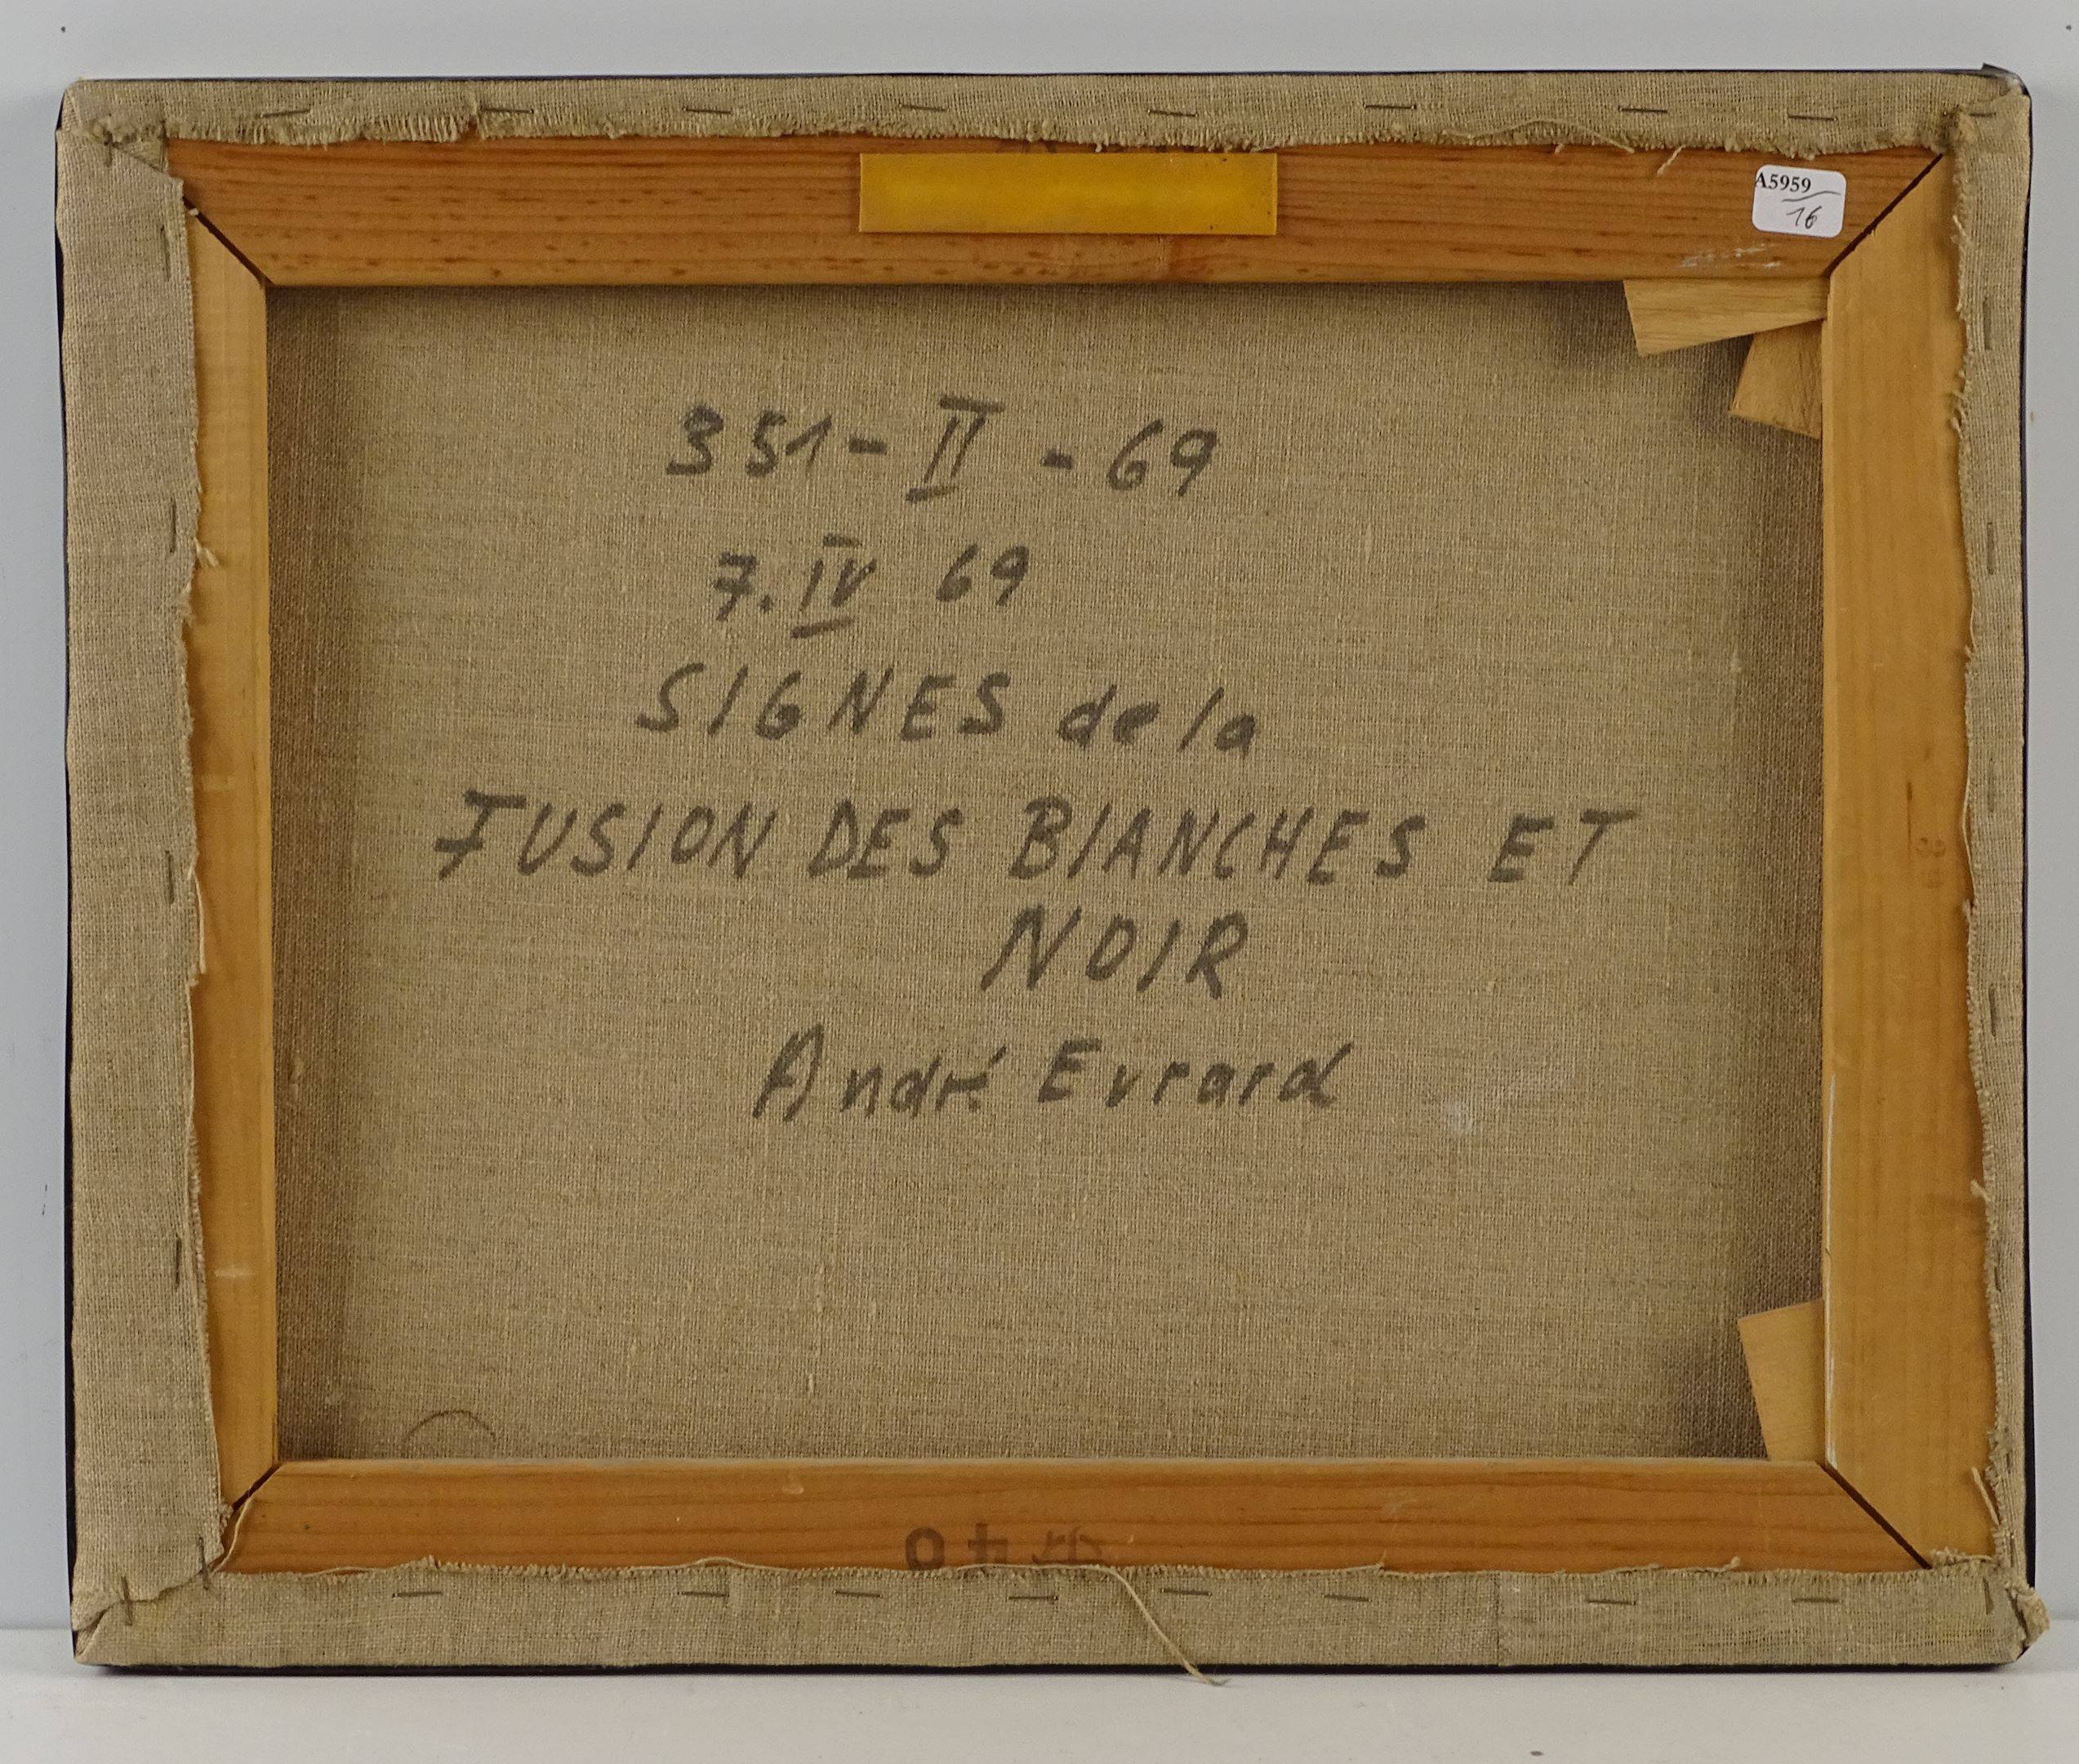 A5959
16
351-II-69
7.IV 69
SIGNES de la
FUSION DES BIANCHES ET
NOIR
André Evrard
40